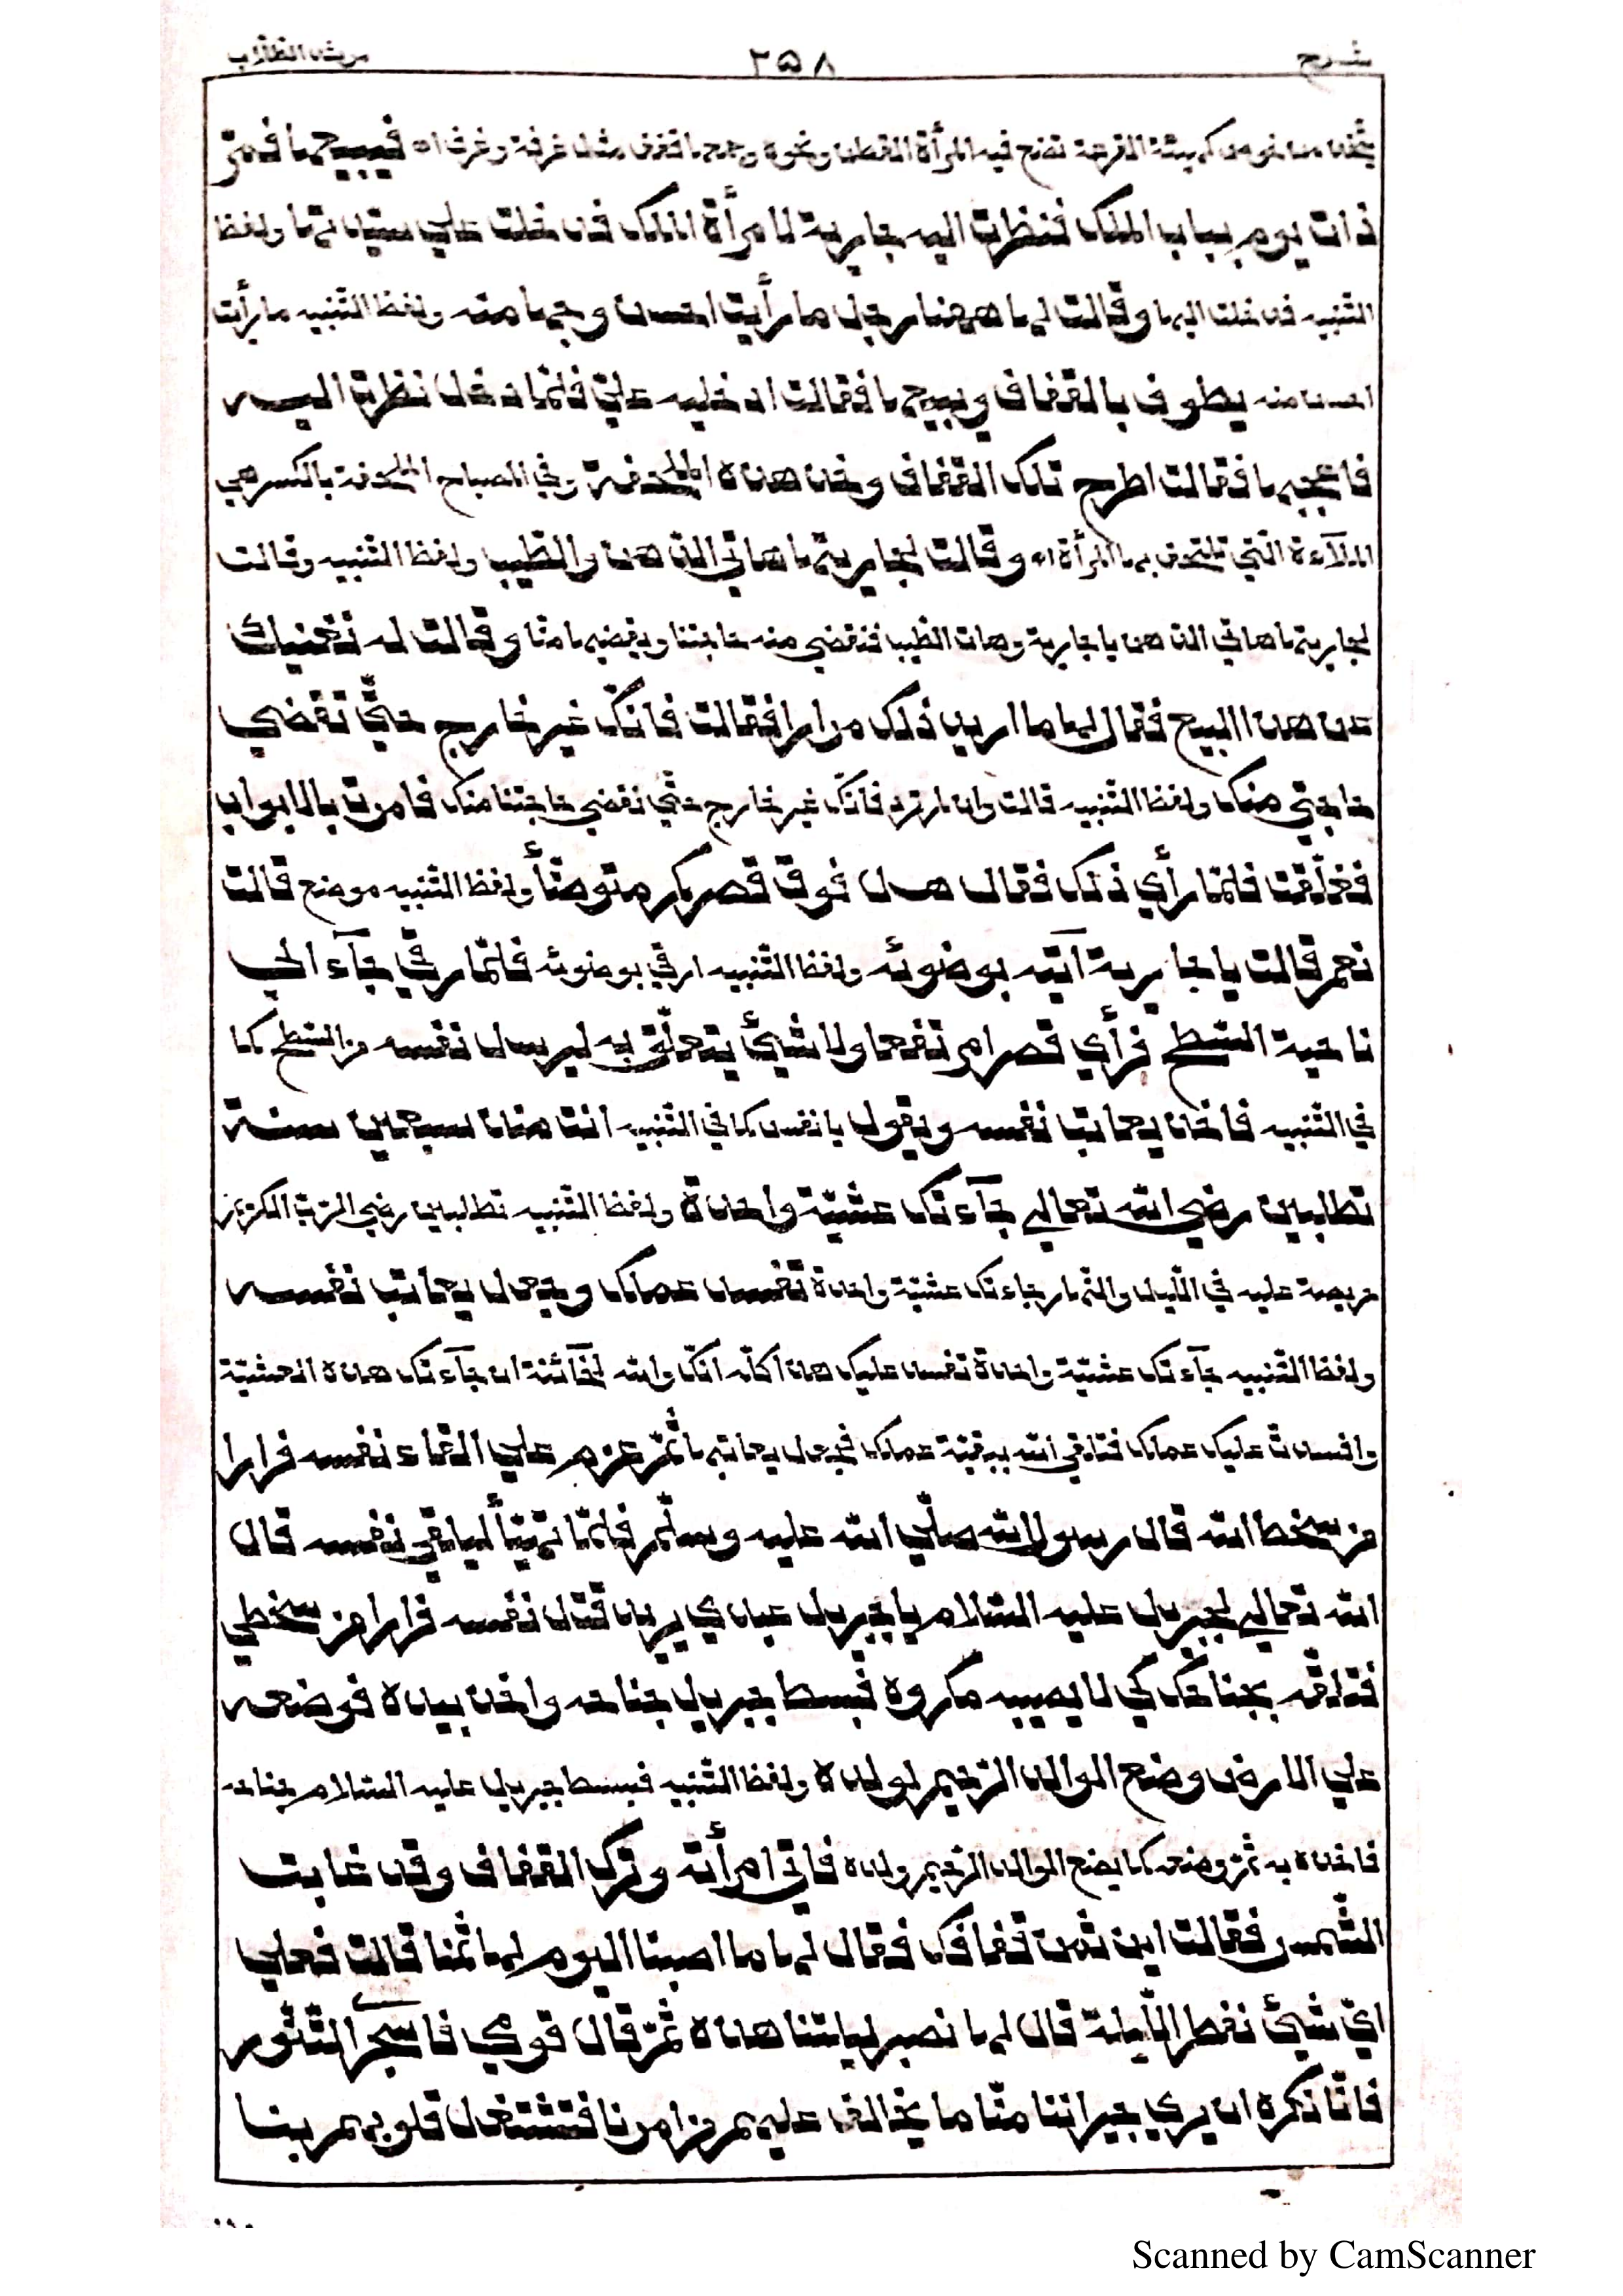 شرح ٢٥٨ مرشد الطلاب
يتخذ من خوص كهيئة القرعة تضع فيه المرأة القطن ونحوه وجمعها قفف مثل غرفة وغرف اه فيبيعها فمرّ
ذات يوم بباب الملك فنظرت اليه جارية لامرأة الملك فدخلت علي سيّدتها ولفظ
التنبيه فدخلت اليها وقالت لها ههنا رجل ما رأيت احسن وجها منه ولفظ التنبيه ما رأيت
احسن منه يطوف بالقفاف ويبيعها فقالت ادخليه عليّ فلمّا دخل نظرت اليه
فاعجبها فقالت اطرح تلك القفاف وخذ هذه الملحفة وفي المصباح الملحفة بالكسر هي
الملآءة الّتي تلتحف بها المرأة اه وقالت لجاريتها هاتي الدّهن والطّيب ولفظ التّنبيه وقالت
لجاريتها هاتي الدّهن يا جارية وهات الطّيب فنقضي منه حاجتنا ويقضيها منّا وقالت له نغنيك
عن هذا البيع فقال لها ما اريد ذلك مرارا فقالت فانّك غير خارج حتّي تقضي
حاجتي منك ولفظ التّنبيه قالت وان لم ترد فانّك غير خارج حتّي نقضي حاجتنا منك فامرت بالابواب
فغلّقت فلمّا رأي ذلك فقال هل فوق قصركم متوضّأ ولفظ التّنبيه موضع قالت
نعم قالت يا جارية آتيه بوضوئه ولفظ التّنبيه ارقي بوضوئه فلمّا رقي جآء الي
ناحية السّطح فرأي قصرا مرتفعا ولا شيئ يتعلّق به ليرسل نفسه من السّطح كما
في التّنبيه فاخذ يعاتب نفسه ويقول يا نفس كما في التّنبيه انت منذ سبعين سنة
تطلبين رضي الله تعالي جآءتك عشيّة واحدة ولفظ التّنبيه تطلبين رضي الرّبّ الكريم
حريصة عليه في اللّيل والنّهار جاءتك عشيّة واحدة تفسد عملك وجعل يعاتب نفسه
ولفظ التّنبيه جآءتك عشيّة واحدة تفسد عليك هذا كلّه انّك والله لخآئنة ان جآءتك هذه العشيّة
وافسدت عليك عملك فتلقي الله ببقيّة عملك فجعل يعاتبها ثمّ عزم علي القاء نفسه فرارا
من سخط الله قال رسول الله صلّي الله عليه وسلّم فلمّا تهيّأ ليلقي نفسه قال
الله تعالي لجبريل عليه السّلام يا جبريل عبدي يريد قتل نفسه فرارا من سخطي
فتلقّه بجناحك كي لا يصيبه مكروه فبسط جبريل جناحه واخذ بيده فوضعه
علي الارض وضع الوالد الرّحيم لولده ولفظ التّنبيه فبسط جبريل عليه السّلام جناحه
فاخذه به ثمّ وضعه كما يضع الوالد الرّحيم ولده فاتي امرأته وترك القفاف وقد غابت
الشّمس فقالت اين ثمن قفافك فقال لها ما اصبنا اليوم لها ثمنا قالت فعلي
ايّ شيئ نفطر اللّيلة قال لها نصبر ليلتنا هذه ثمّ قال قومي فاسجر التّنّور
فانّا نكره ان يري جيراننا منّا ما يخالف عليهم من امرنا فتشتغل قلوبهم بنا
Scanned by CamScanner